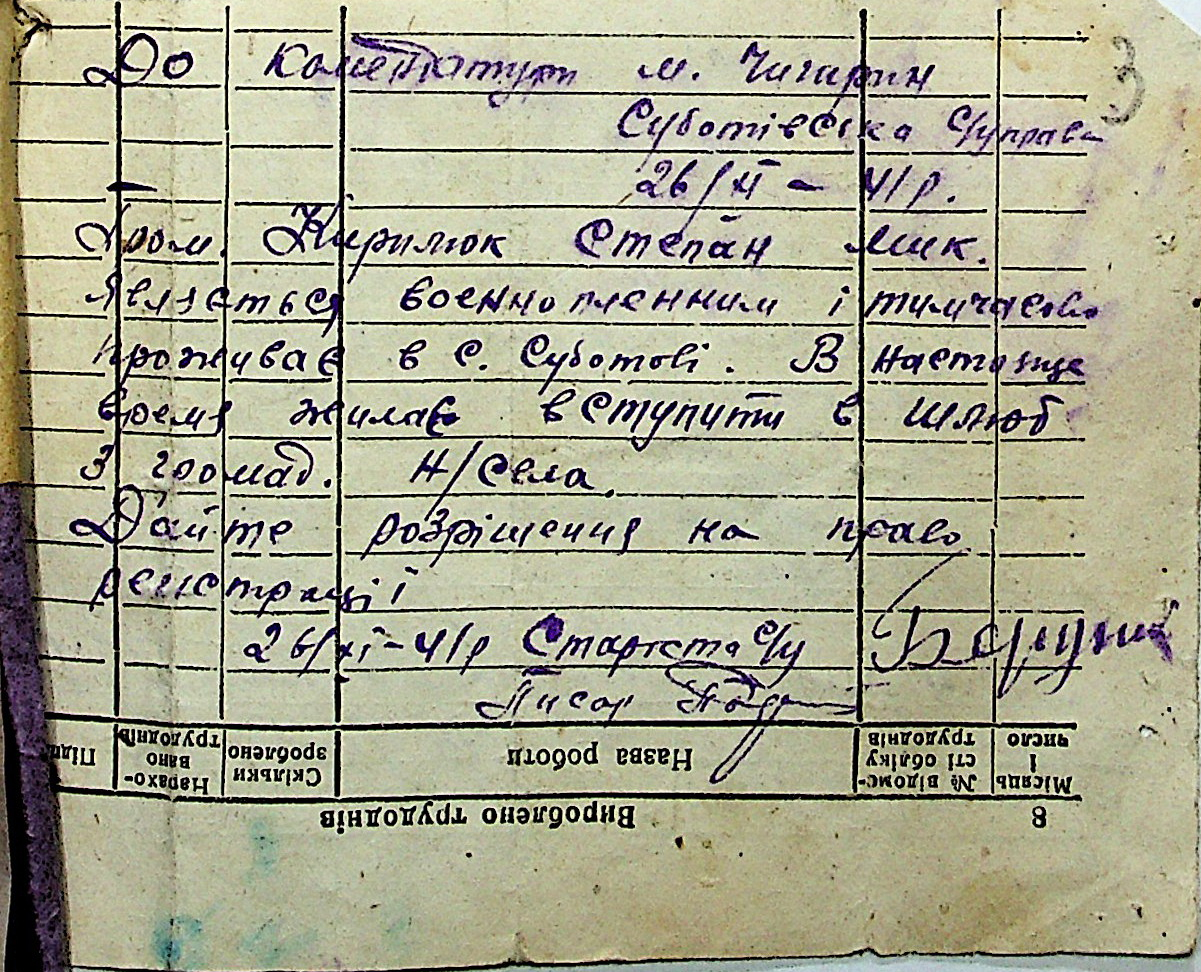 3
До коменDатури м. Чигирин
Суботівсіка С/управа
26/XI – 41р.
Гром. Кирилюк Степан Мик.
являється военнопленним і тимчасово
проживає в с. Суботові. В настояще
время жилає вступити в шлюб
з громад. Н/Села.
Дайте розрішення на право
реистрації
26/XI – 41р Староста С/у
Писар
Місяць і число
№ відомості обліку трудоднів
Назва роботи
Скільки зроблено
Нарахо-вано трудоднів
Підп
8 Вироблено трудоднів